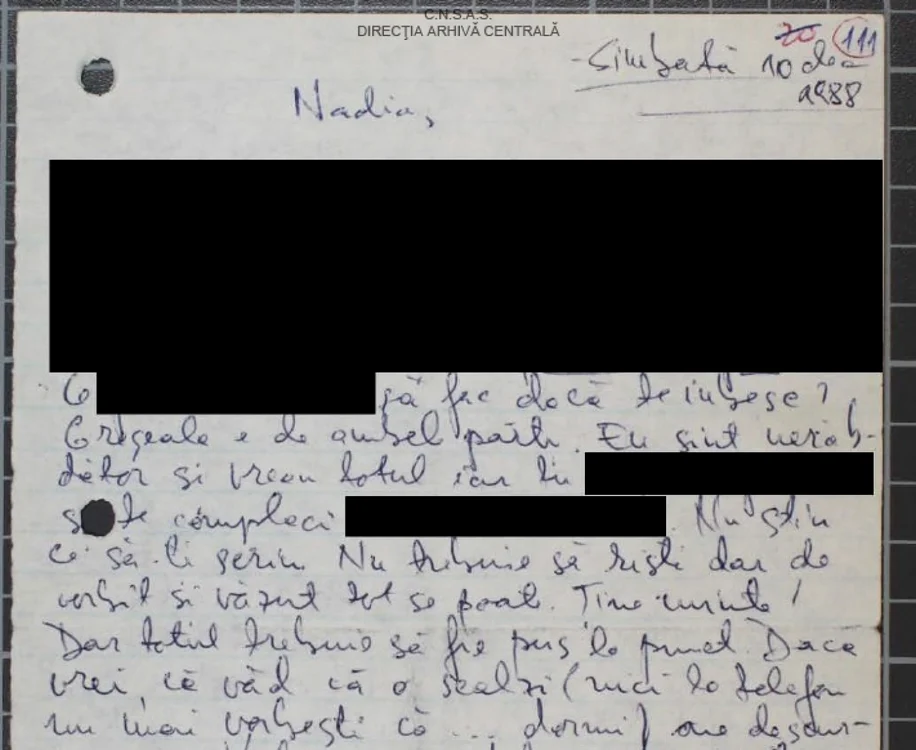 C.N.S.A.S.
DIRECŢIA ARHIVĂ CENTRALĂ
20 111
Sîmbătă 10 dec
1988
Nadia,
C să fac dacă te iubesc?
Greșeala e de ambel părți. Eu sînt nerăb-
dător și vreau totul iar tu
s te complaci . Nu știu
ce să-ți scriu. Nu trebuie să riști dar de
vorbit și văzut tot se poate. Ține minte!
Dar totul trebuie să fie pus la punct. Dacă
vrei, că văd că o scalzi (nici la telefon
nu mai vorbești că ... dormi)